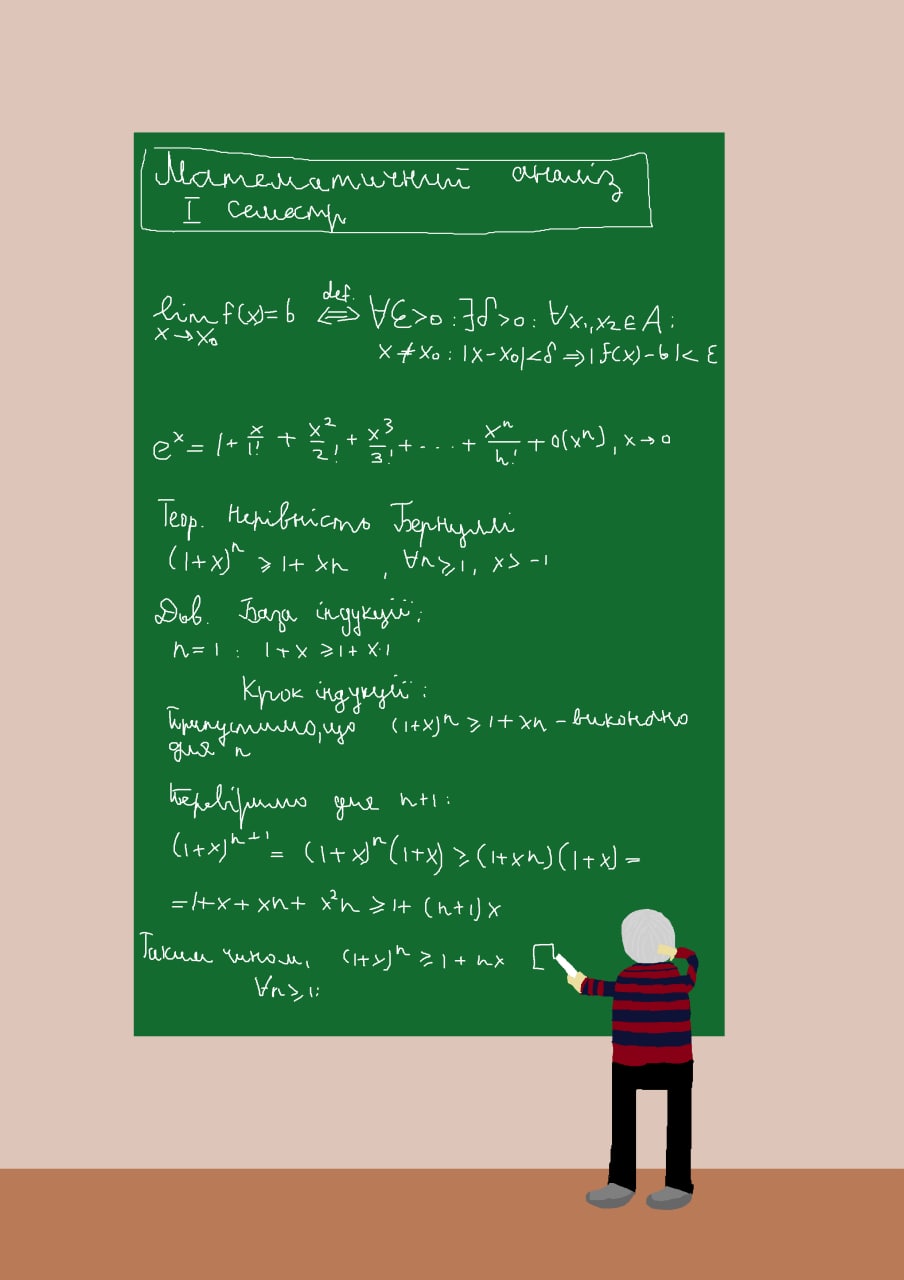 Математичний аналіз
I семестр
lim f(x)=b ⟺ def. ∀ε>0 : ∃δ>0 : ∀x₁,x₂∈A :
x→x₀
x≠x₀ : |x-x₀|<δ ⇒ |f(x)-b|<ε
eˣ = 1 + x/1! + x²/2! + x³/3! + .... + xⁿ/n! + o(xⁿ), x→0
Теор. Нерівність Бернуллі
(1+x)ⁿ ≥ 1+xn , ∀n≥1, x>-1
Дов. База індукції:
n=1 : 1+x ≥ 1+x·1
Крок індукції:
Припустимо, що (1+x)ⁿ ≥ 1+xn - виконано
для n
Перевіримо для n+1:
(1+x)ⁿ⁺¹ = (1+x)ⁿ(1+x) ≥ (1+xn)(1+x) =
= 1+x+xn+x²n ≥ 1+(n+1)x
Таким чином, (1+x)ⁿ ≥ 1+nx
∀n≥1: